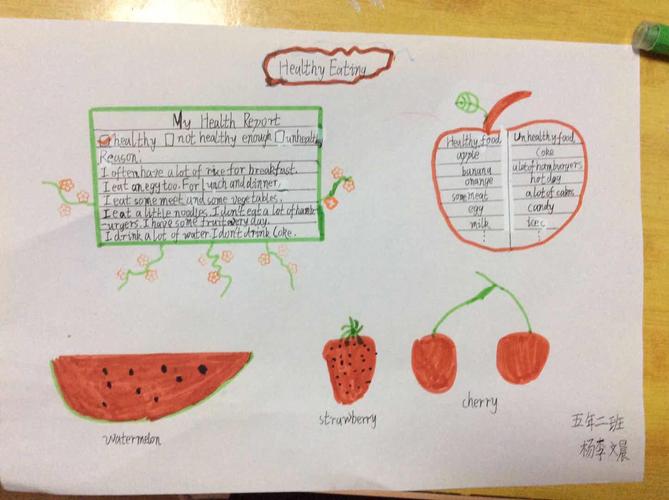 Healthy Eating
My Health Report
healthy not healthy enough unhealthy
Reason.
I often have a lot of rice for breakfast.
I eat an egg too. For lunch and dinner.
I eat some meet and some vegetables.
I eat a little noodles. I don't eat a lot of hamb-
urgers. I have some fruit every day.
I drink a lot of water. I don't drink Coke.
Healthy food
apple
banana
orange
some meat
egg
milk
Unhealthy food
Coke
a lot of hamburgers
hot dog
a lot of cakes
candy
watermelon
strawberry
cherry
五年二班
杨李文晨